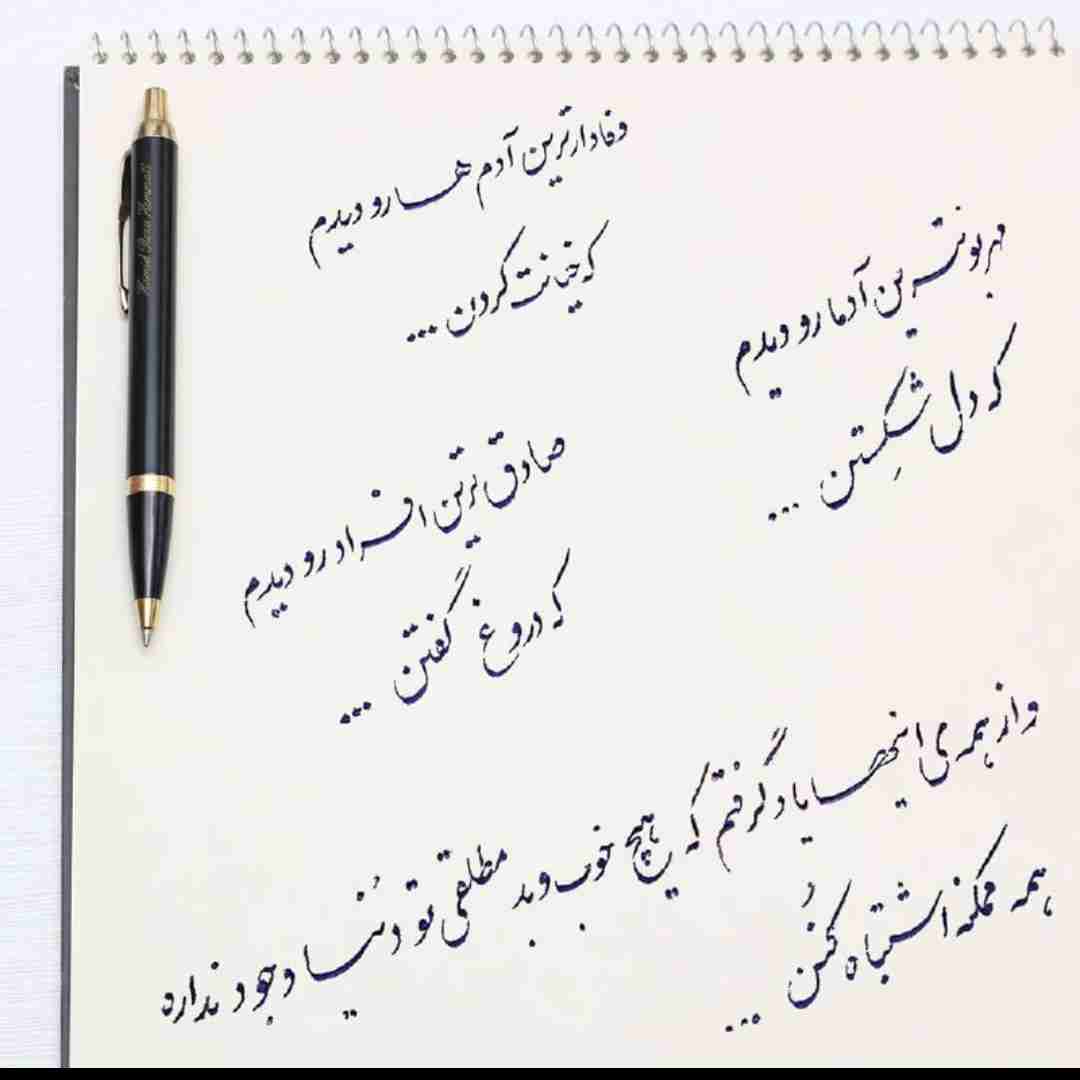 وفادارترین آدم ها رو دیدم
که خیانت کردن ...
مهربونترین آدما رو دیدم
که دل شکستن ...
صادق ترین افراد رو دیدم
که دروغ گفتن ...
و از همه ی اینها یاد گرفتم که هیچ خوب و بد مطلقی تو دُنیا وجود نداره
همه ممکنه اشتباه کُنن ...